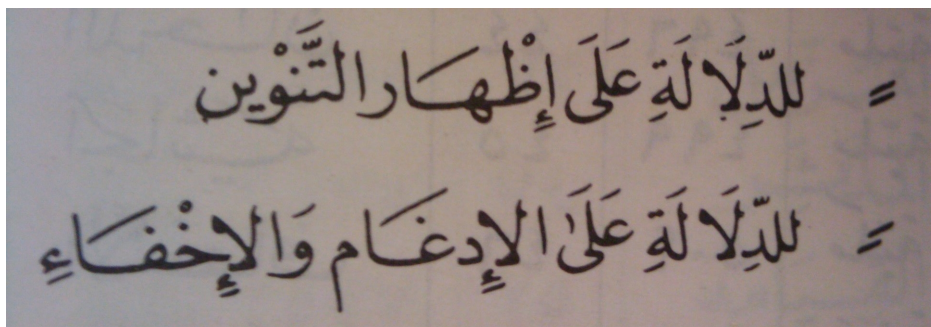 ـً لِلدِّلَالَةِ عَلَى إِظْهَارِ التَّنْوِين
ـً لِلدِّلَالَةِ عَلَى الإِدغَامِ وَالإِخْفَاءِ